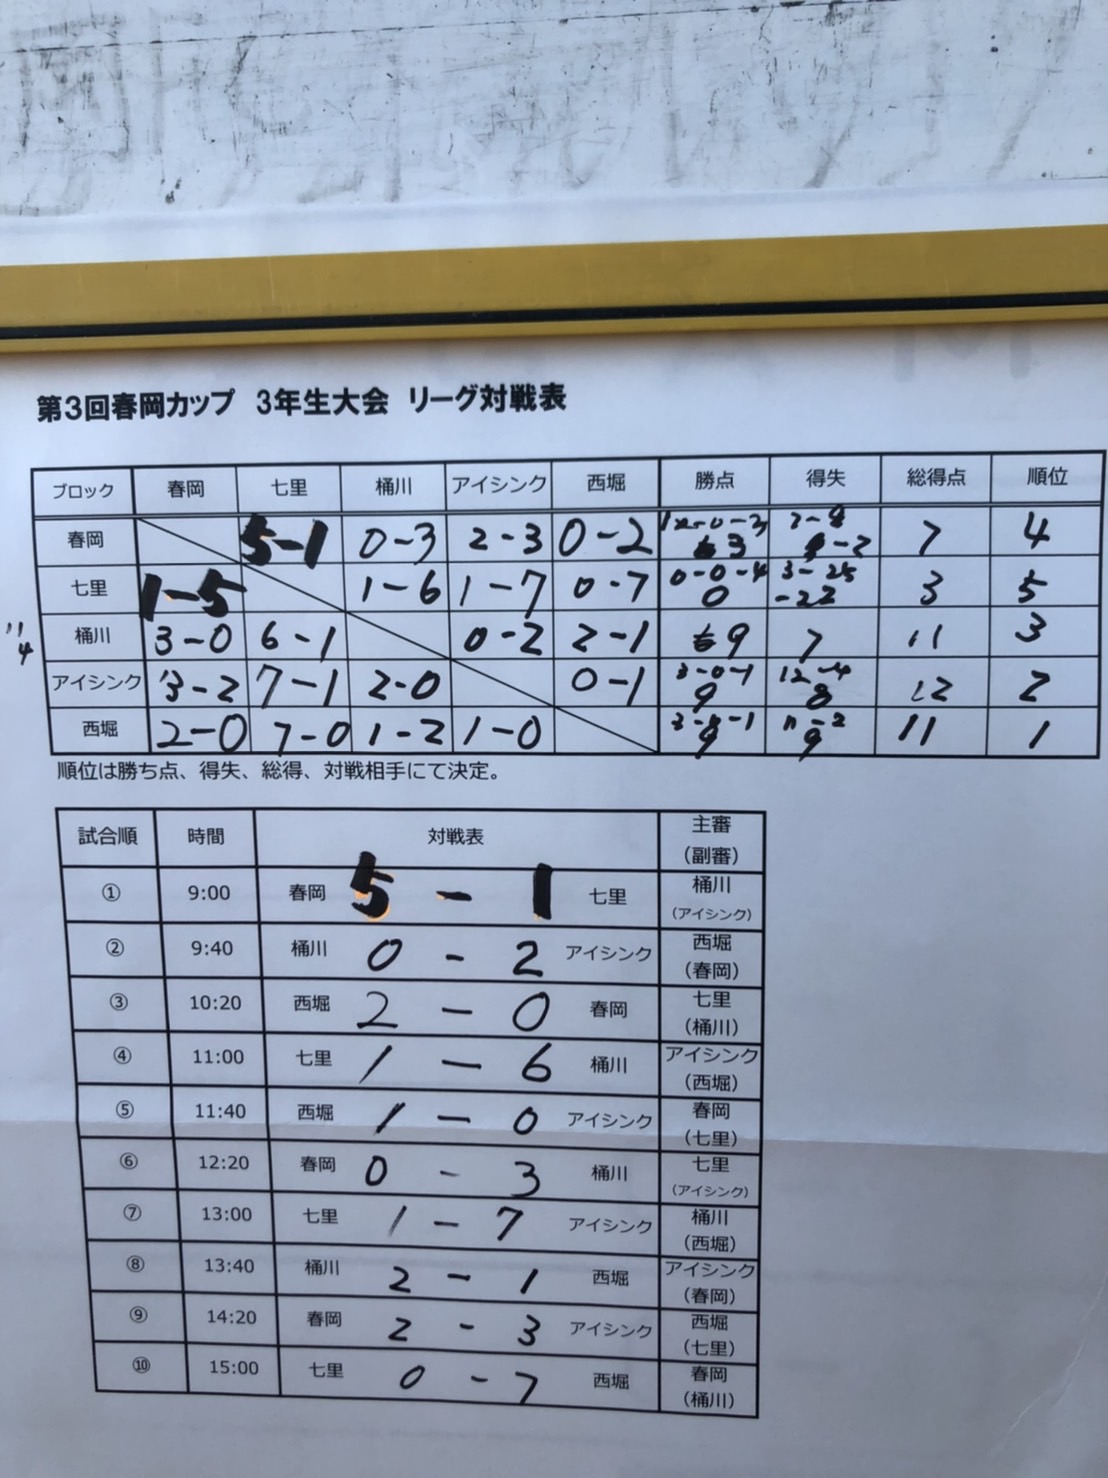 第3回春岡カップ 3年生大会 リーグ対戦表
ブロック 春岡 七里 桶川 アイシンク 西堀 勝点 得失 総得点 順位
春岡 5-1 0-3 2-3 0-2 3 7 4
七里 1-5 1-6 1-7 0-7 0-0-4 0 3-25 -22 3 5
11 4 桶川 3-0 6-1 0-2 2-1 9 7 11 3
アイシンク 3-2 7-1 2-0 0-1 3-0-1 9 12-4 8 12 2
西堀 2-0 7-0 1-2 1-0 9 11-2 9 11 1
順位は勝ち点、得失、総得、対戦相手にて決定。
試合順 時間 対戦表 主審
(副審)
① 9:00 春岡 5 - 1 七里 桶川
(アイシンク)
② 9:40 桶川 0 - 2 アイシンク 西堀
(春岡)
③ 10:20 西堀 2 - 0 春岡 七里
(桶川)
④ 11:00 七里 1 - 6 桶川 アイシンク
(西堀)
⑤ 11:40 西堀 1 - 0 アイシンク 春岡
(七里)
⑥ 12:20 春岡 0 - 3 桶川 七里
(アイシンク)
⑦ 13:00 七里 1 - 7 アイシンク 桶川
(西堀)
⑧ 13:40 桶川 2 - 1 西堀 アイシンク
(春岡)
⑨ 14:20 春岡 2 - 3 アイシンク 西堀
(七里)
⑩ 15:00 七里 0 - 7 西堀 春岡
(桶川)